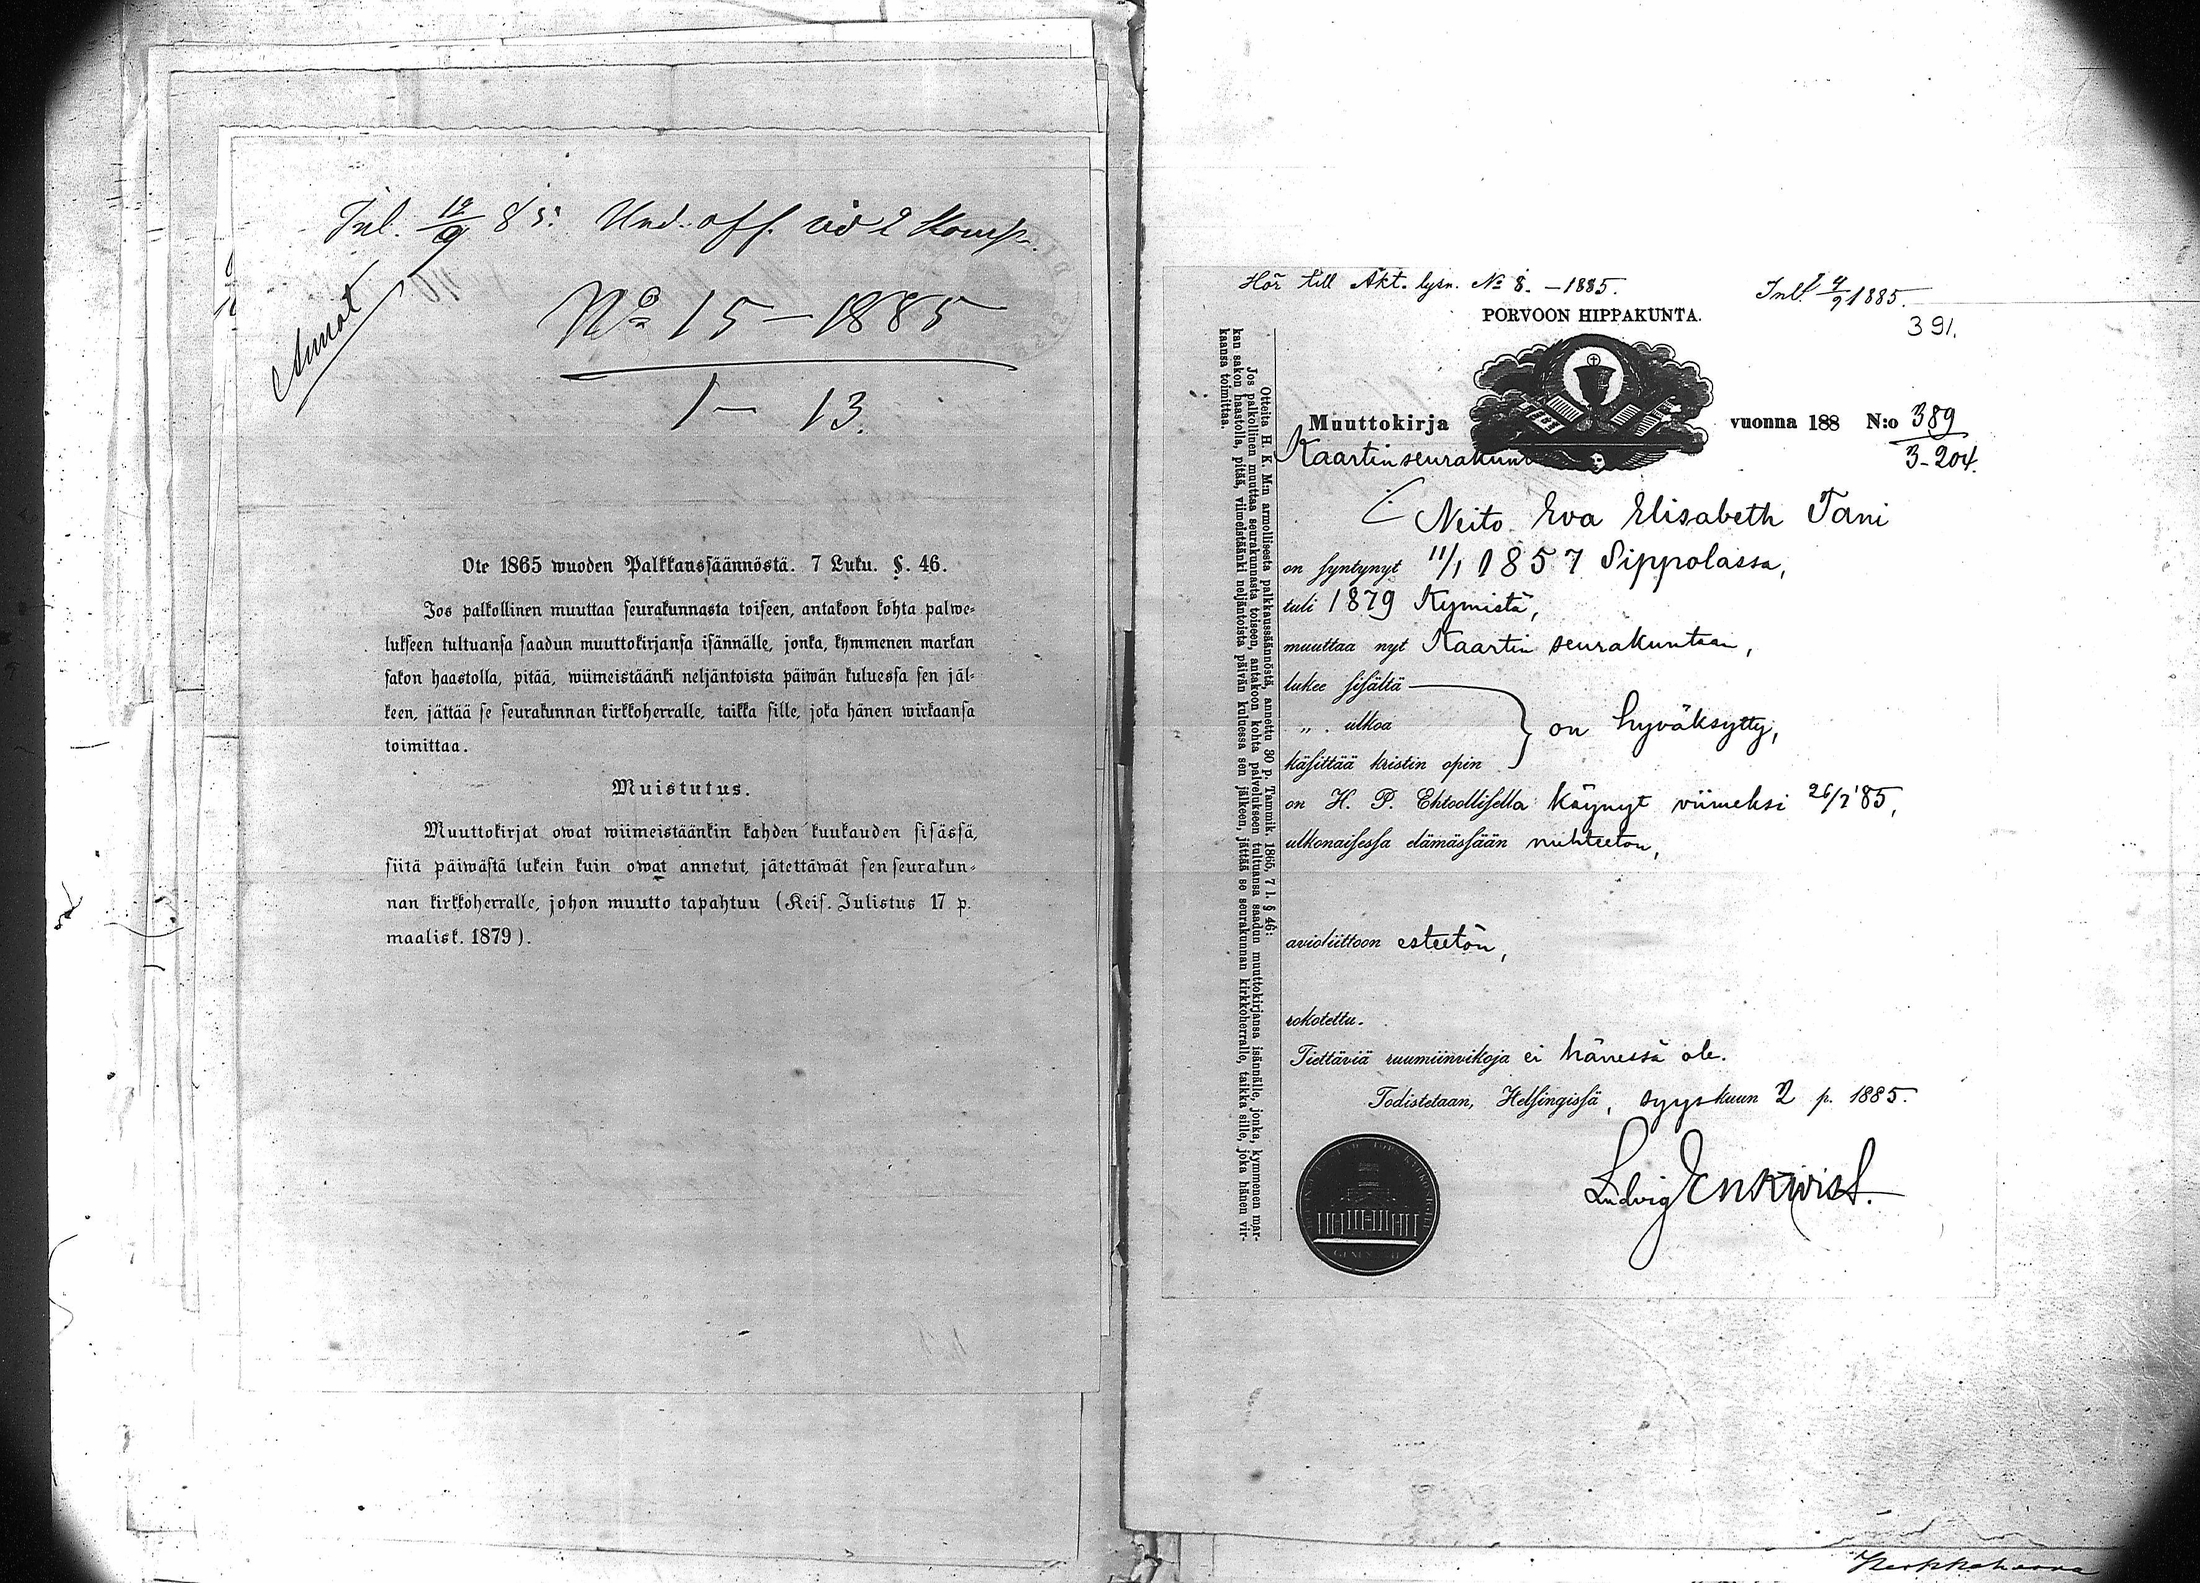 Inl. 12/9 85. Und. off. vid 2 Komp.
Annot
No 15 – 1885
1 – 13.
Ote 1865 wuoden Palkkaussäännöstä. 7 Luku. §. 46.
Jos palkollinen muuttaa seurakunnasta toiseen, antakoon kohta palwe-
lukseen tultuansa saadun muuttokirjansa isännälle, jonka, kymmenen markan
sakon haastolla, pitää, wiimeistäänki neljäntoista päiwän kuluessa sen jäl-
keen, jättää se seurakunnan kirkkoherralle, taikka sille, joka hänen wirkaansa
toimittaa.
Muistutus.
Muuttokirjat owat wiimeistäänkin kahden kuukauden sisässä,
siitä päiwästä lukein kuin owat annetut, jätettäwät sen seurakun-
nan kirkkoherralle, johon muutto tapahtuu (Keis. Julistus 17 p.
maalisk. 1879).
Hör till Äkt. lysn. No 8. – 1885.
Inl. 4/9 1885.
391.
PORVOON HIPPAKUNTA.
Muuttokirja vuonna 188 N:o 389
Kaartin seurakunt
3-204.
Neito Eva Elisabeth Tani
on syntynyt 11/1 1857 Sippolassa,
tuli 1879 Kymistä,
muuttaa nyt Kaartin seurakuntaan,
lukee sisältä
„ ulkoa } on hyväksytty,
käsittää kristin opin
on H. P. Ehtoollisella käynyt viimeksi 26/7 85,
ulkonaisessa elämässään nuhteeton,
avioliittoon esteetön,
rokotettu.
Tiettäviä ruumiinvikoja ei hänessä ole.
Todistetaan, Helsingissä, syyskuun 2 p. 1885.
Ludvig Enkvist.
Otteita H. K. M:n armollisesta palkkaussäännöstä, annettu 30 p. Tammik. 1865, 7 l. § 46:
Jos palkollinen muuttaa seurakunnasta toiseen, antakoon kohta palvelukseen tultuansa saadun muuttokirjansa isännälle, jonka, kymmenen mar-
kan sakon haastolla, pitää, viimeistäänki neljäntoista päivän kuluessa sen jälkeen, jättää se seurakunnan kirkkoherralle, taikka sille, joka hänen vir-
kaansa toimittaa.